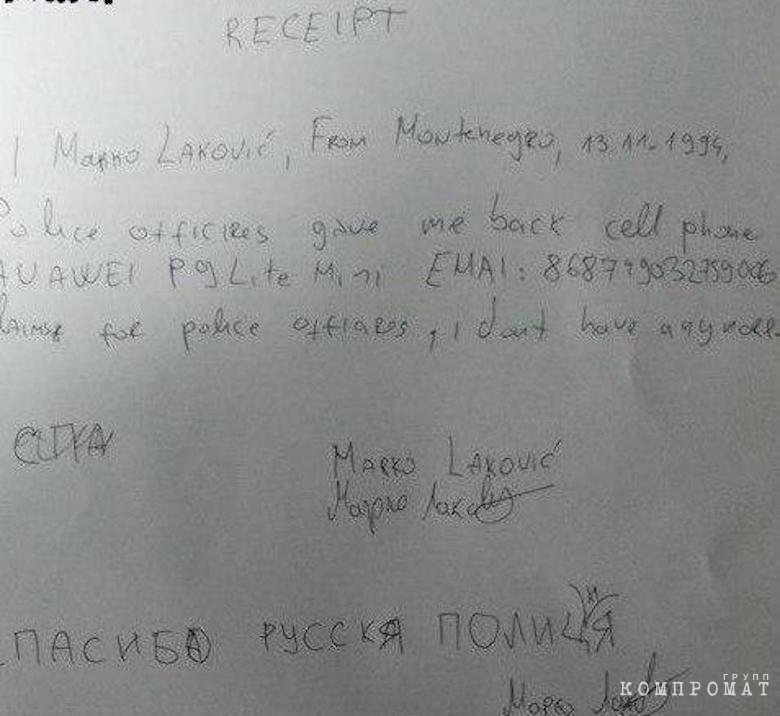 RECEIPT
I Марко LAKOVIĆ, FROM MONTENEGRO, 13.11.1994,
Police officires gave me back cell phone
AUAWEI P9 Lite Mini EMAI: 868779032759006
for police officires, i dont have anymore
MARKO LAKOVIĆ
Марко
ПАСИБО РУССКЯ ПОЛИЦИЯ
Марко
ГРУПП
КОМПРОМАТ